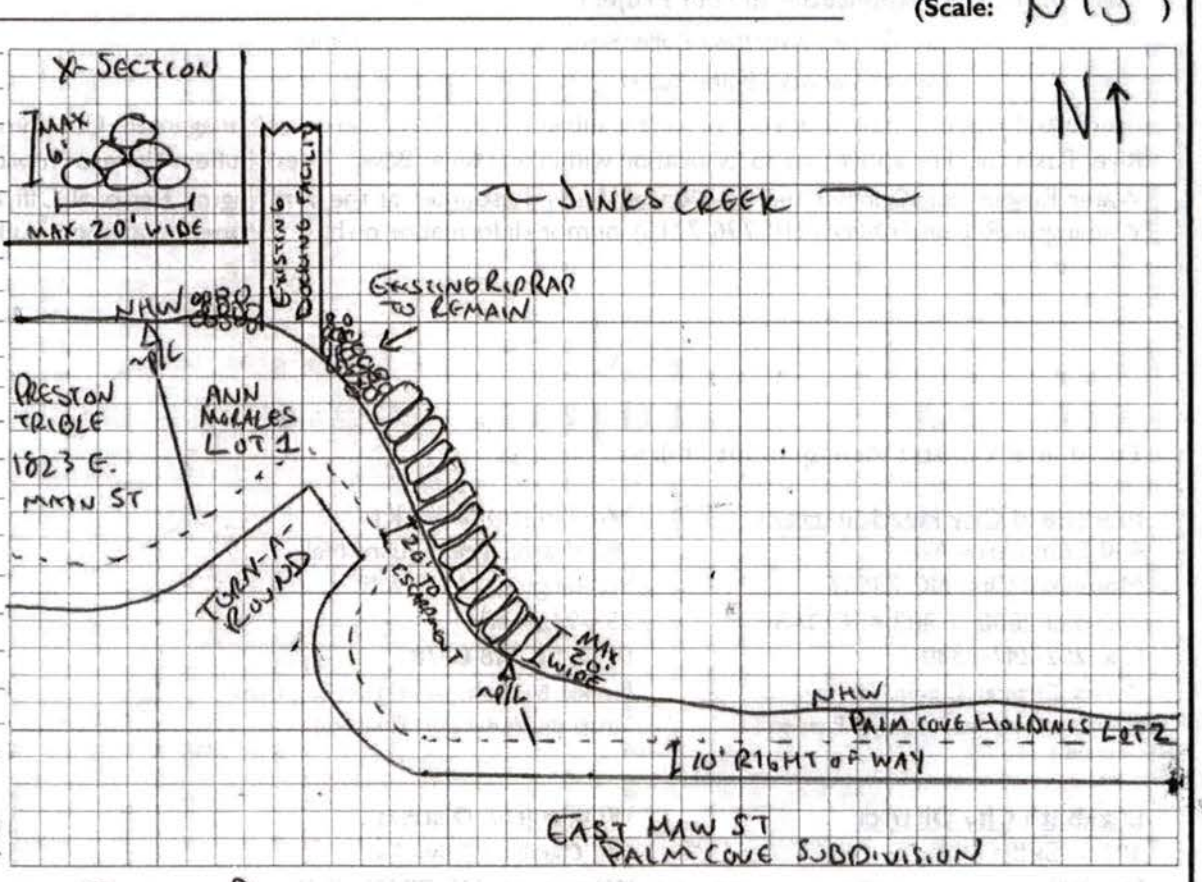 (Scale: NTS )
X-SECTION
MAX
6'
MAX 20' WIDE
N↑
EXISTING
DOCKING FACILITY
~ JINKS CREEK ~
EXISTING RIPRAP
TO REMAIN
NHW
~P/L
PRESTON
TRIBLE
1823 E.
MAIN ST
ANN
MORALES
LOT 1
TURN-A-
ROUND
20' TO
ESCARPMENT
MAX
20'
WIDE
~P/L
NHW
PALM COVE HOLDINGS LOT 2
10' RIGHT OF WAY
EAST MAIN ST
PALM COVE SUBDIVISION